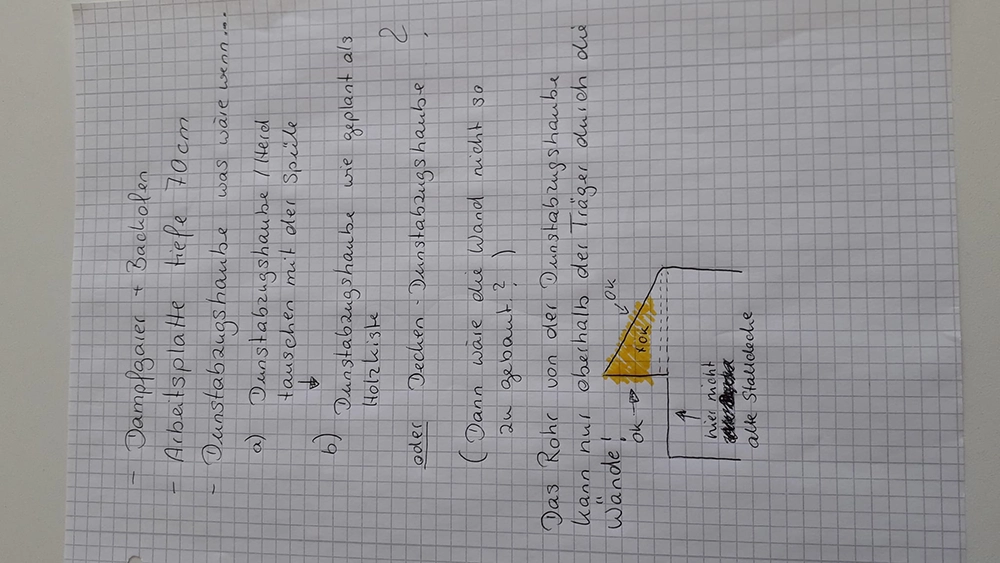 - Dampfgarer + Backofen
- Arbeitsplatte tiefe 70cm
- Dunstabzugshaube was wäre wenn...
a) Dunstabzugshaube / Herd
tauschen mit der Spüle
b) Dunstabzugshaube wie geplant als
Holzkiste
oder Decken-Dunstabzugshaube ?
(Dann wäre die Wand nicht so
zu gebaut?)
Das Rohr von der Dunstabzugshaube
kann nur oberhalb der Träger durch die
Wände!
OK →
OK
OK
hier nicht
alte Stalldecke